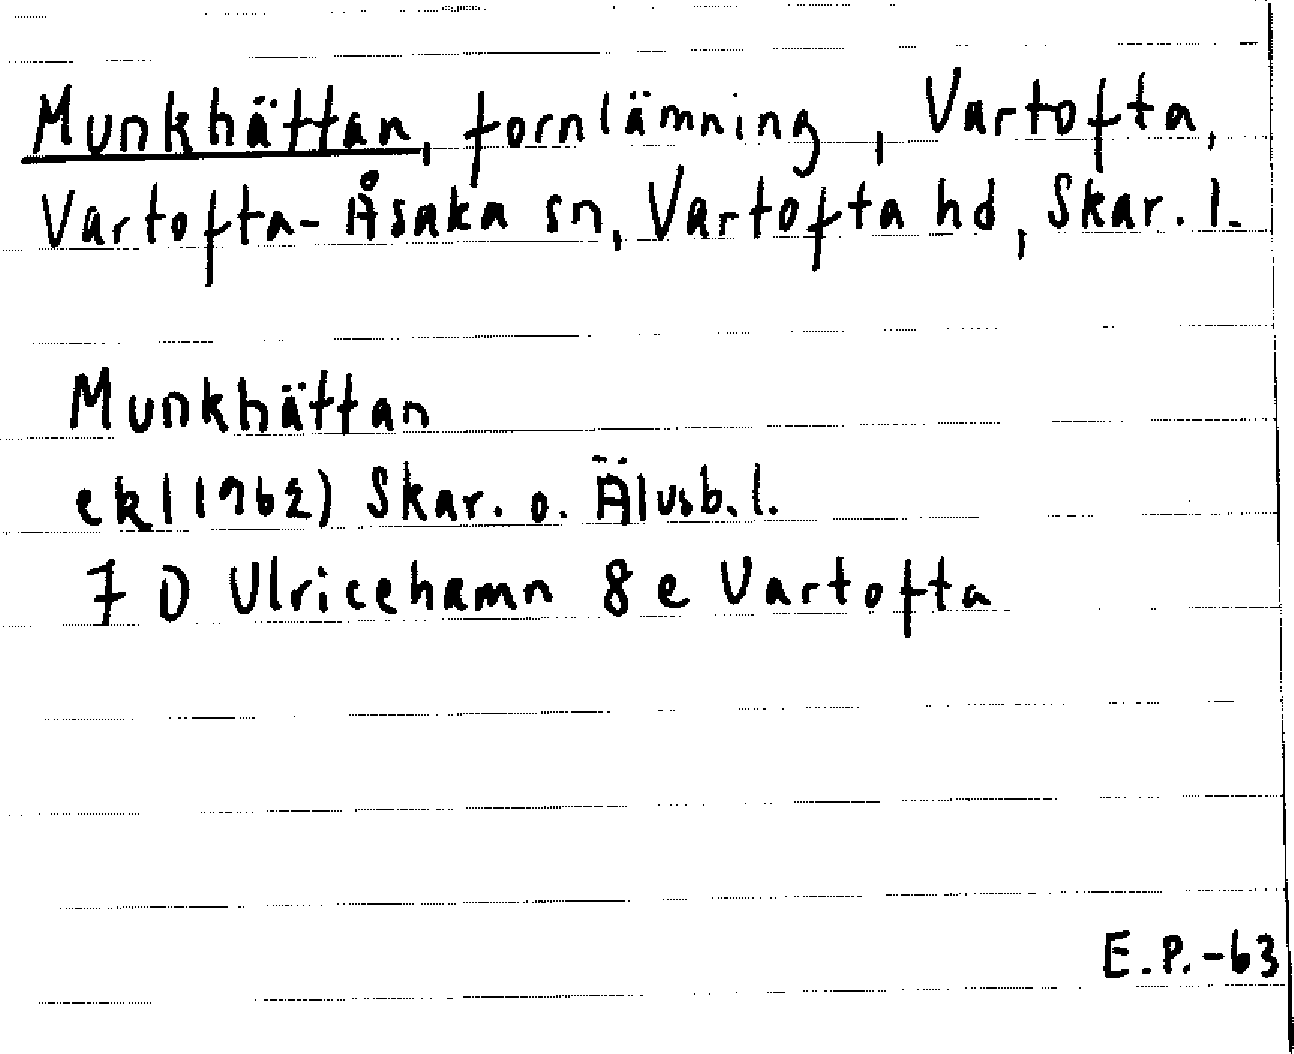 Munkhättan, fornlämning, Vartofta,
Vartofta-Åsaka sn, Vartofta hd, Skar. l.
Munkhättan
ek (1962) Skar. o. Älvsb. l.
7 D Ulricehamn 8 e Vartofta
E.P.-63